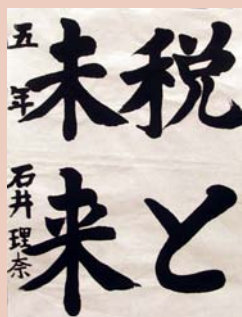 税と
未来
五年 石井理奈